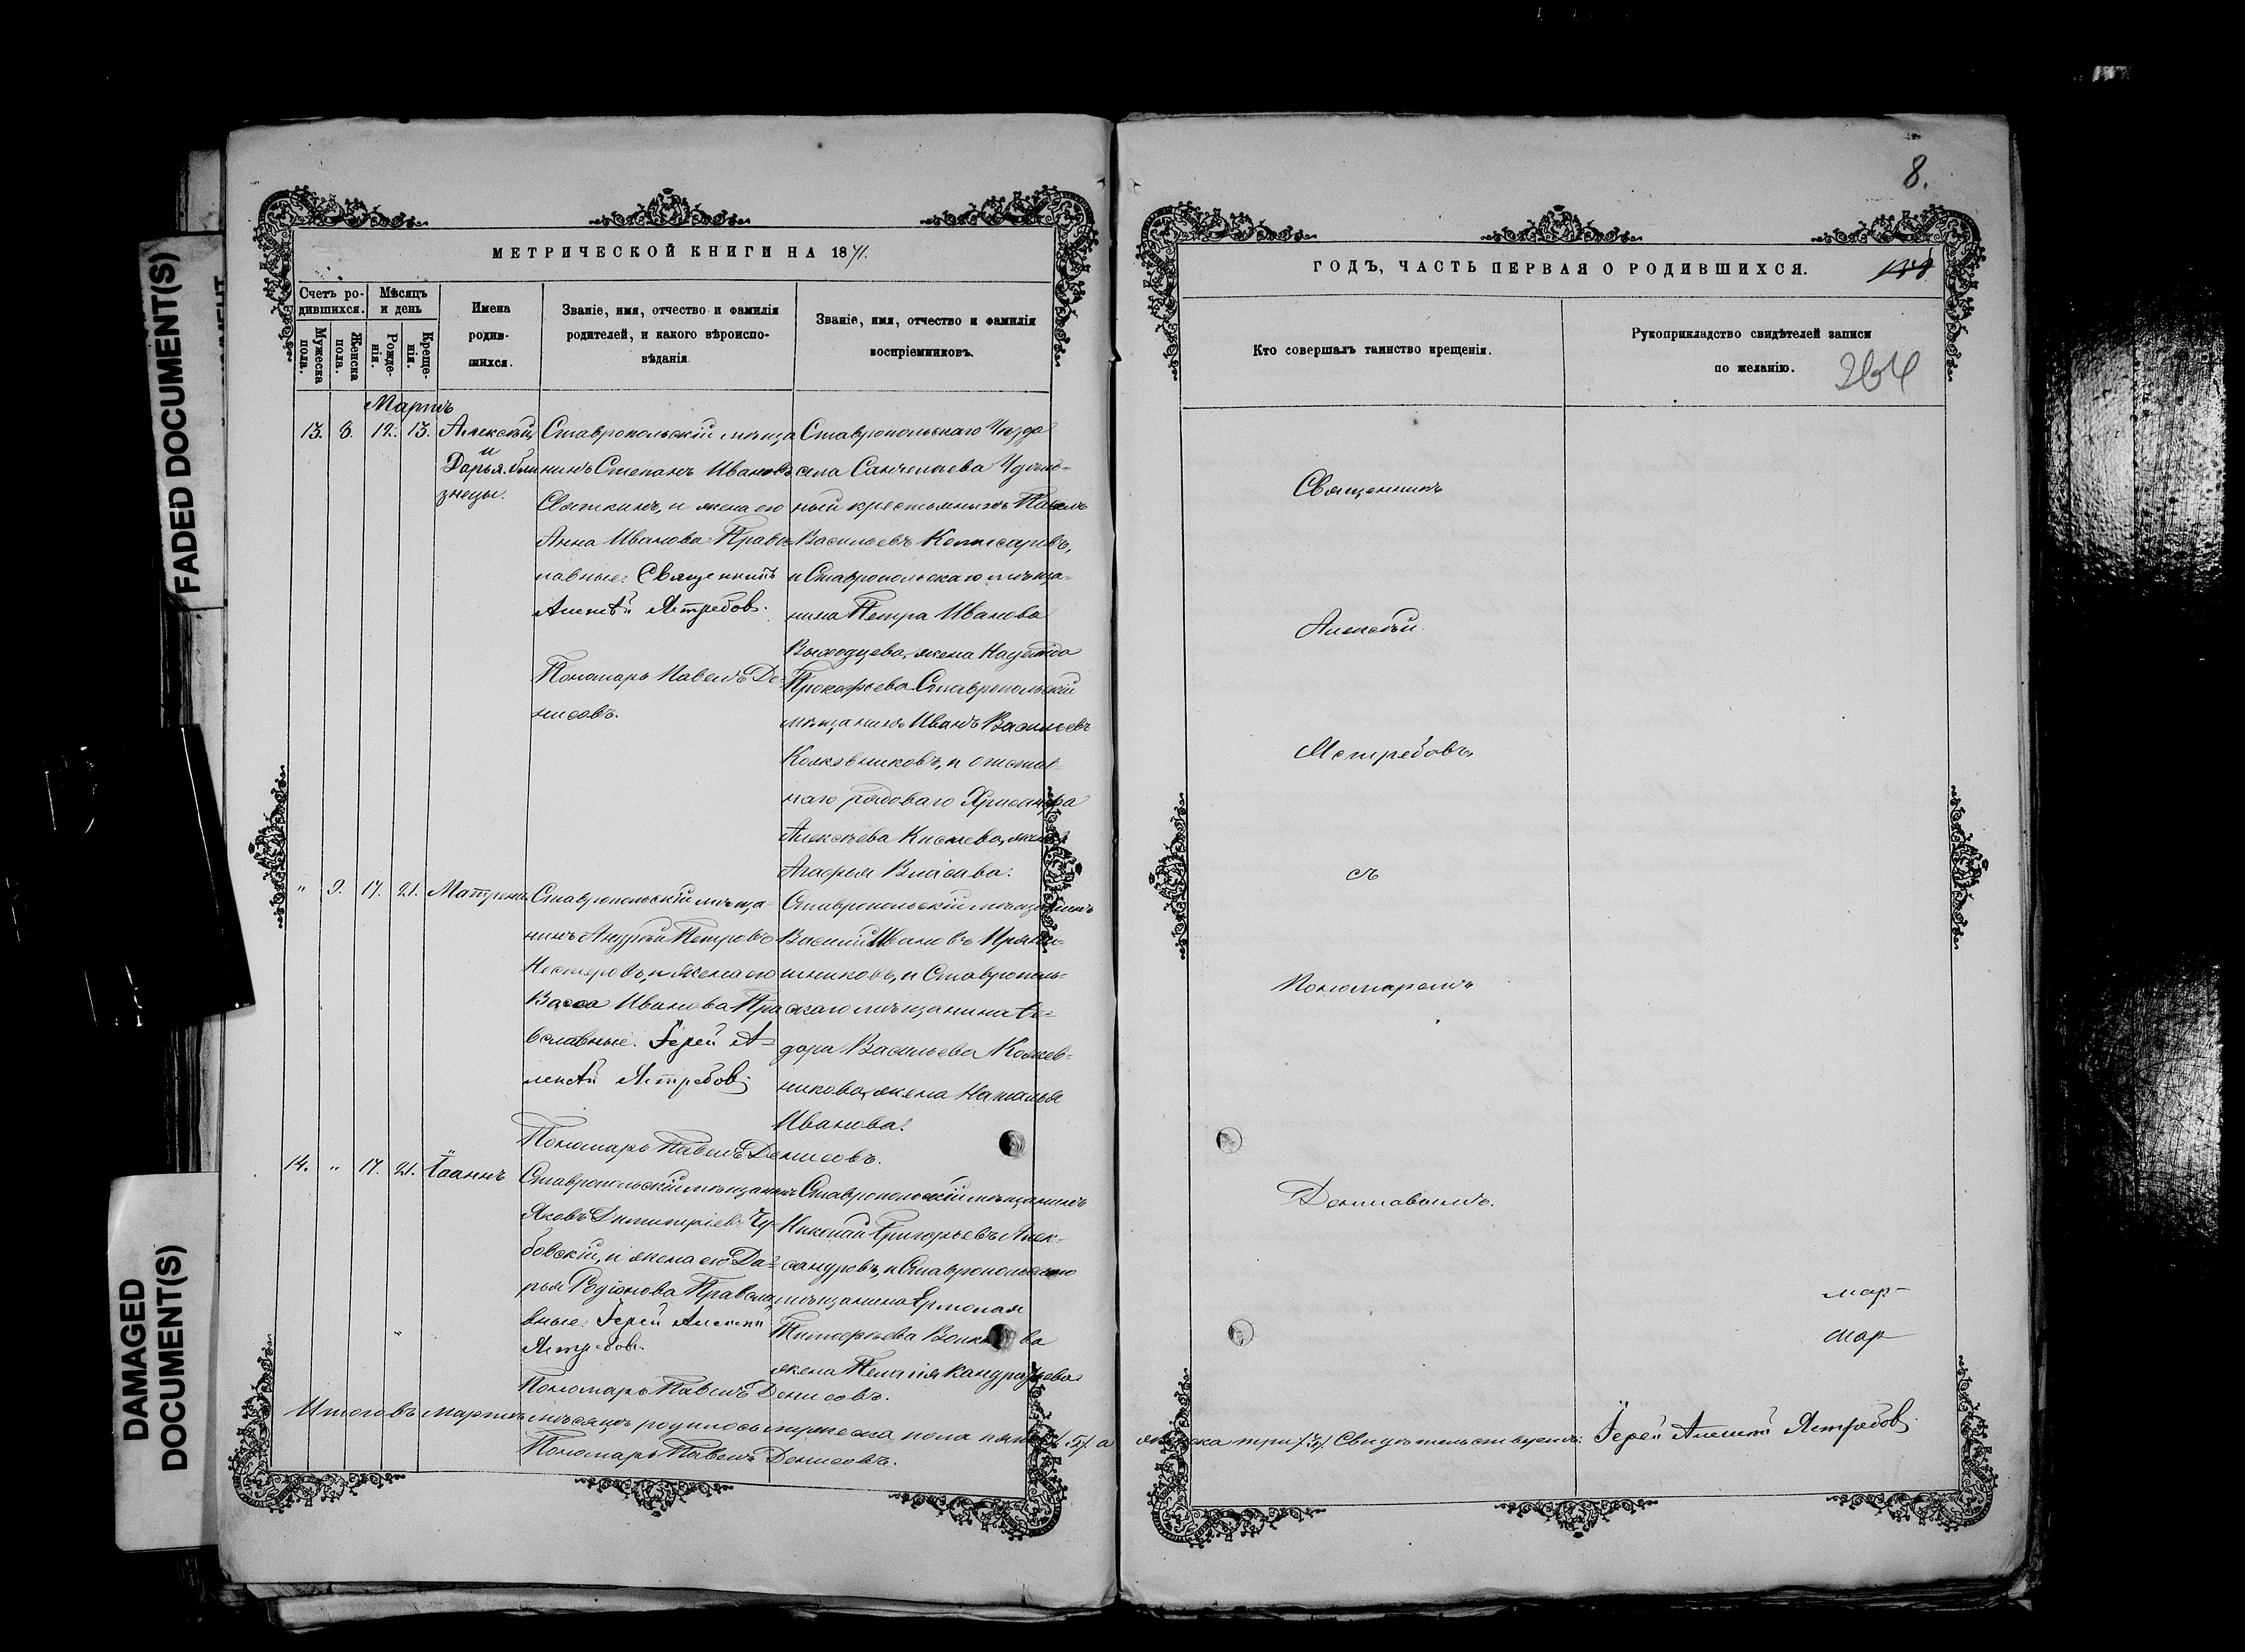 FADED DOCUMENT(S)
DAMAGED
DOCUMENT(S)
МЕТРИЧЕСКОЙ КНИГИ НА 1871.
Счетъ ро-
дившихся.
Мужеска
пола.
Женска
пола.
Мѣсяцъ
и день
Рожде-
нія.
Креще-
нія.
Имена
родив-
шихся.
Званіе, имя, отчество и фамилія
родителей, и какого вѣроиспо-
вѣданія
Званіе, имя, отчество и фамилія
воспріемниковъ.
Мартъ
13. 8. 12. 13.
Алексѣй
и
Дарья. бли
знецы.
Ставропольскій мѣща
нинъ Степанъ Ивановъ
и жена его
Анна Иванова Правос
лавные. Священникъ
Алексѣй Ястребовъ.
Пономарь Павелъ Де-
нисовъ.
Ставропольскаго Уѣзда
села Санчелеева Удѣль-
ный крестьянинъ Павелъ
Васильевъ
и Ставропольскаго мѣща-
нина Петра Иванова
жена Надежда
Прокофьева Ставропольскій
мѣщанинъ Иванъ Васильевъ
и отстав-
наго рядоваго Хрисанфа
Алексѣева жена
Агафья Власова.
" 9. 17. 21.
Матрена
Ставропольскій мѣща-
нинъ Андрей Петровъ
Нестеровъ, и жена его
Васса Иванова Пра
вославные. Іерей А-
лексѣй Ястребовъ
Пономарь Павелъ Денисовъ.
Ставропольскій мѣщанинъ
Василій Ивановъ Пряни-
шниковъ, и Ставрополь-
скаго мѣщанина
дора Васильева
жена Наталья
Иванова.
14. " 17. 21.
Іоаннъ
Ставропольскій мѣщанинъ
Яковъ Димитріевъ Чу-
бовскій, и жена его Да-
рья Родіонова Правосла
вные. Іерей Алексѣй
Ястребовъ.
Пономарь Павелъ Денисовъ.
Ставропольскій мѣщанинъ
Николай Григорьевъ Алек-
сандровъ, и Ставропольскаго
мѣщанина Ермолая
Тимофѣева
жена Пелагія Кандратьева
Итого въ Мартѣ мѣсяцѣ родилось мужеска пола пять /5/. а
Пономарь Павелъ Денисовъ.
8.
ГОДЪ, ЧАСТЬ ПЕРВАЯ О РОДИВШИХСЯ.
Кто совершалъ таинство крещенія.
Рукоприкладство свидѣтелей записи
по желанію.
264
Священникъ
Алексѣй
Ястребовъ,
съ
Пономаремъ
Денисовымъ.
мар-
мар-
женска три /3/. Свидѣтельствуемъ: Іерей Алексѣй Ястребовъ